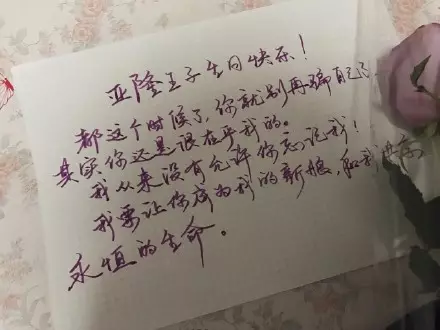 亚隆王子生日快乐！
都这个时候了，你就别再骗自己了
其实你还是很在乎我的。
我从来没有允许你忘记我！
我要让你成为我的新娘，和我共享
永恒的生命。